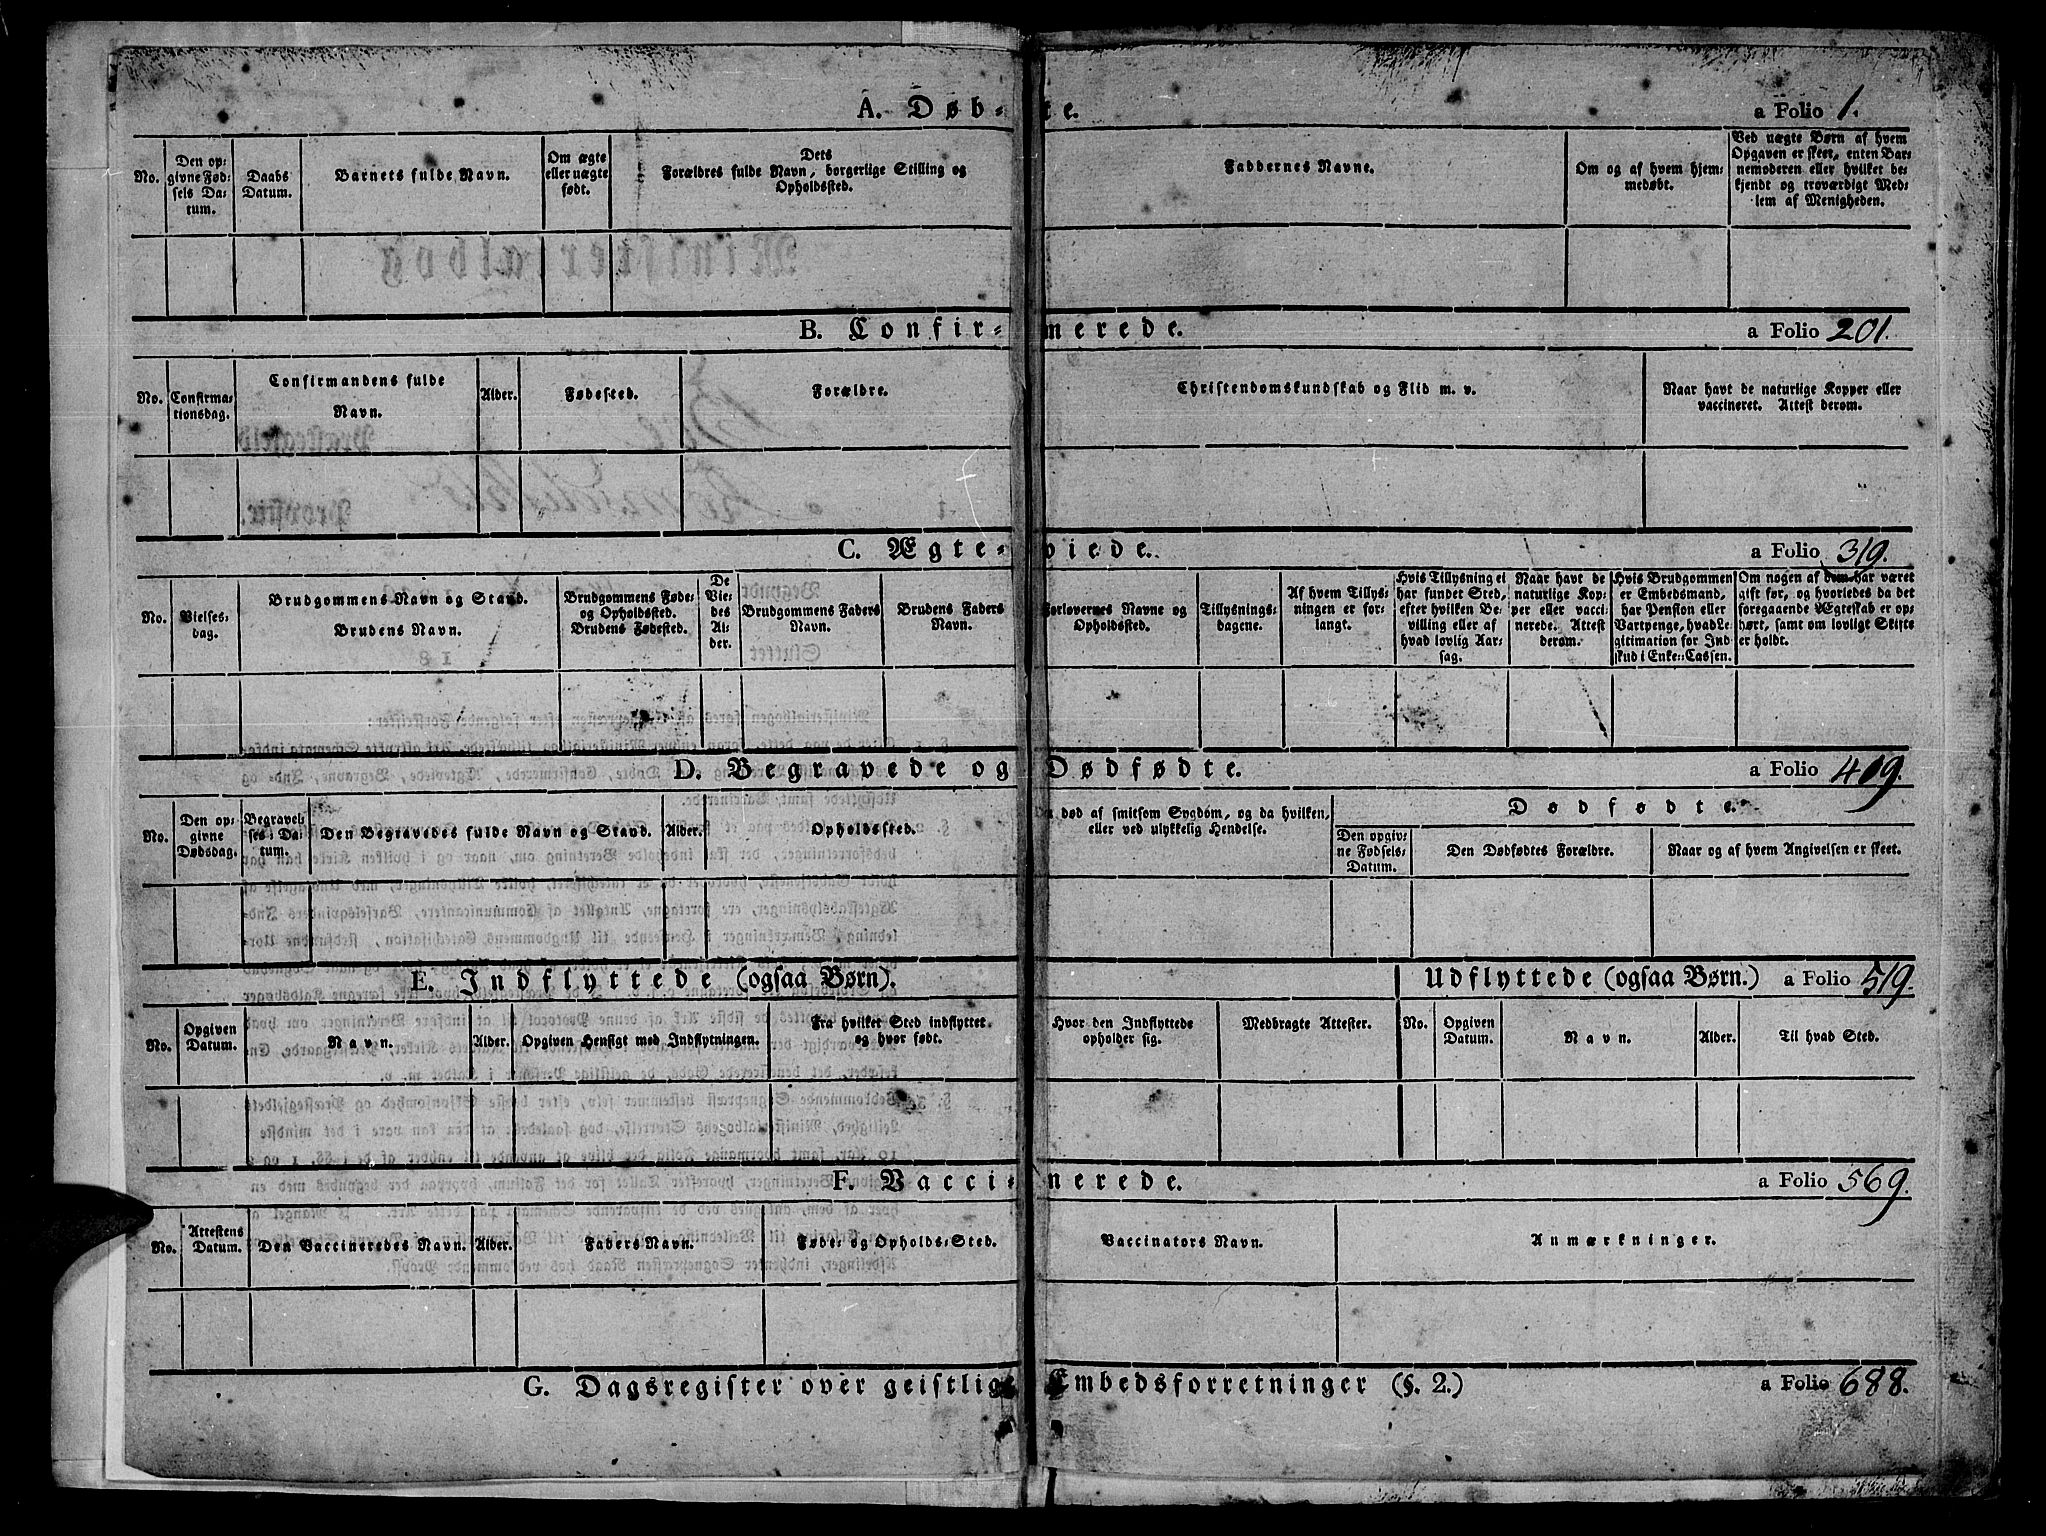 A. Døb- te. a Folio 1.
No.
Den op-
givne Fød-
sels Da-
tum.
Daabs
Datum.
Barnets fulde Navn.
Om ægte
eller uægte
født.
Dets
Forældres fulde Navn, borgerlige Stilling og
Opholdssted.
Faddernes Navne.
Om og af hvem hjem-
medøbt.
Ved uægte Børn af hvem
Opgaven er skeet, enten Bar-
nemoderen eller hvilket be-
kjendt og troværdigt Med-
lem af Menigheden.
B. Confir- merede. a Folio 201.
No.
Confirma-
tionsdag.
Confirmandens fulde
Navn.
Alder.
Fødested.
Forældre.
Christendomskundskab og Flid m. v.
Naar havt de naturlige Kopper eller
vaccineret. Attest derom.
C. Ægte- viede. a Folio 319.
No.
Vielses-
dag.
Brudgommens Navn og Stand.
Brudens Navn.
Brudgommens Føde-
og Opholdssted.
Brudens Fødested.
De
Vie-
des
Al-
der.
Brudgommens Faders
Navn.
Brudens Faders
Navn.
Forlovernes Navne og
Opholdssted.
Tillysnings-
dagene.
Af hvem Tillys-
ningen er for-
langt.
Hvis Tillysning ei
har fundet Sted,
efter hvilken Be-
villing eller af
hvad lovlig Aar-
sag.
Naar havt de
naturlige Kop-
per eller vacci-
nerede. Attest
derom.
Hvis Brudgommen
er Embedsmand,
har Pension eller
Vartpenge, hvad Le-
gitimation for Ind
skud i Enke-Cassen.
Om nogen af dem har været
gift før, og hvorledes da det
foregaaende Ægteskab er op-
hørt, samt om lovligt Skifte
er holdt.
D. Begravede og Dødfødte. a Folio 409.
No.
Den op-
givne
Dødsdag.
Begravel-
ses-Da-
tum.
Den Begravedes fulde Navn og Stand.
Alder.
Opholdssted.
død af smitsom Sygdom, og da hvilken,
eller ved ulykkelig Hendelse.
Dødfødte.
Den opgiv-
ne Fødsels-
Datum.
Den Dødfødtes Forældre.
Naar og af hvem Angivelsen er skeet.
E. Indflyttede (ogsaa Børn). Udflyttede (ogsaa Børn.) a Folio 519.
No.
Opgiven
Datum.
Navn.
Alder.
Opgiven Hensigt med Indflytningen.
Fra hvilket Sted indflyttet
og hvor født.
Hvor den Indflyttede
opholder sig.
Medbragte Attester.
No.
Opgiven
Datum.
Navn.
Alder.
Til hvad Sted.
F. Vacci- nerede. a Folio 569.
No.
Attestens
Datum.
Den Vaccineredes Navn.
Alder.
Faders Navn.
Føde- og Opholds-Sted.
Vaccinators Navn.
Anmærkninger.
G. Dagsregister over geistlige Embedsforretninger (§. 2.) a Folio 688.